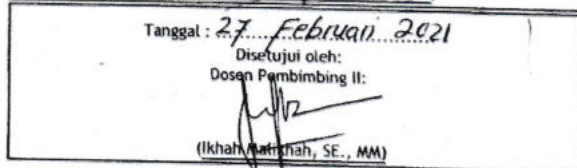 Tanggal : 27 Februari 2021
Disetujui oleh:
Dosen Pembimbing II:
(Ikhah Malikhah, SE., MM)